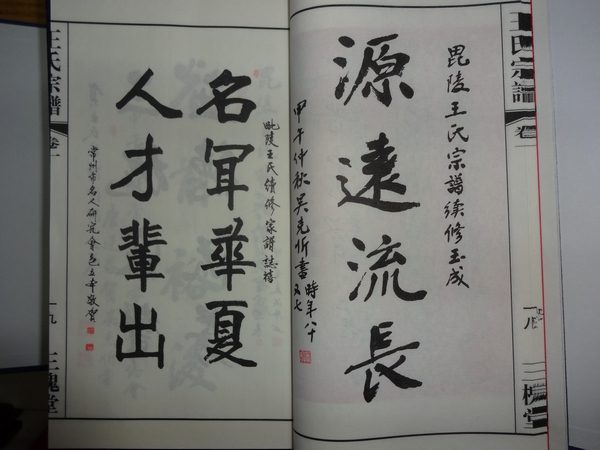 王氏宗譜
卷一
一八
三槐堂
毘陵王氏宗譜续修玉成
源遠流長
甲午仲秋吴克忻書
時年八十又七
毗陵王氏續修家譜誌禧
名冠華夏
人才輩出
常州市名人研究會包立本敬賀
王氏宗譜
卷一
一九
三槐堂